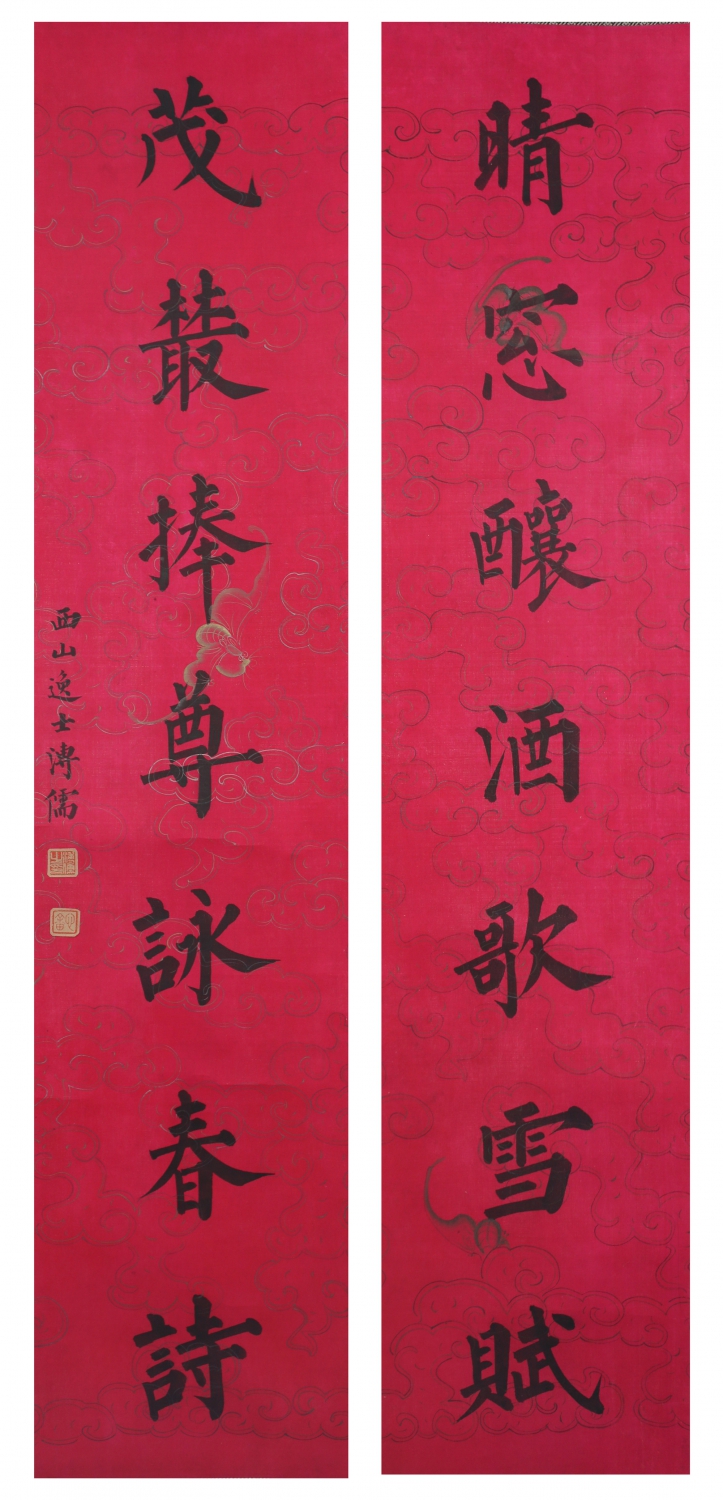 晴窓釀酒歌雪賦
茂叢捧尊詠春詩
西山逸士溥儒